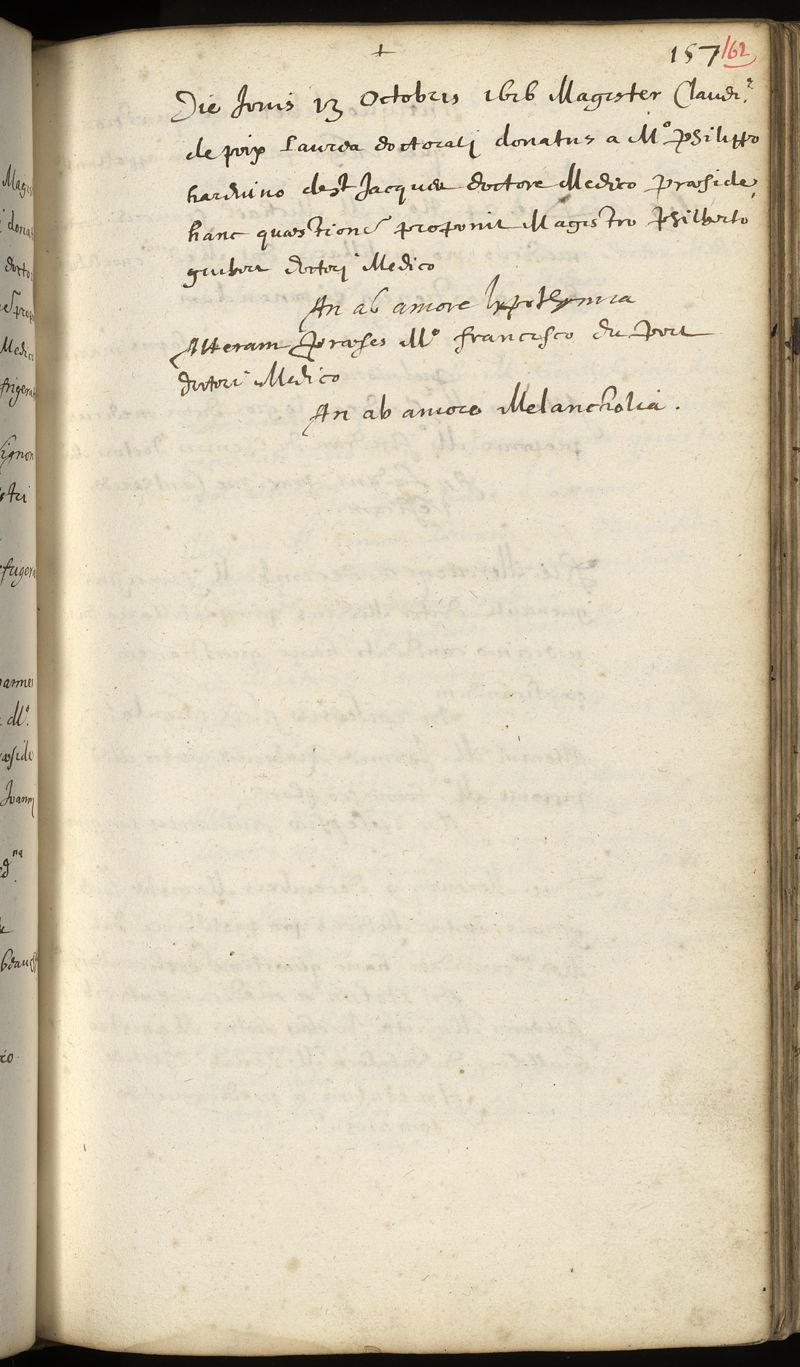 +
157 162
Die Jovis 13 Octobris 1616 Magister Claudi⁹
de poix Laurea doctorali donatus a M° Philippo
harduino de st Jacques doctore Medico præside,
hanc quæstione proponit Magistro Philberto
guibert doctori Medico
An ab amore lypothymia
Alteram Præses M° francisco du port
doctori Medico
An ab amore Melancholia .
Mag
dona
docto
prop
Medi
frigera
ignon
sti
fuger
arme
M°.
æside
Joann
co